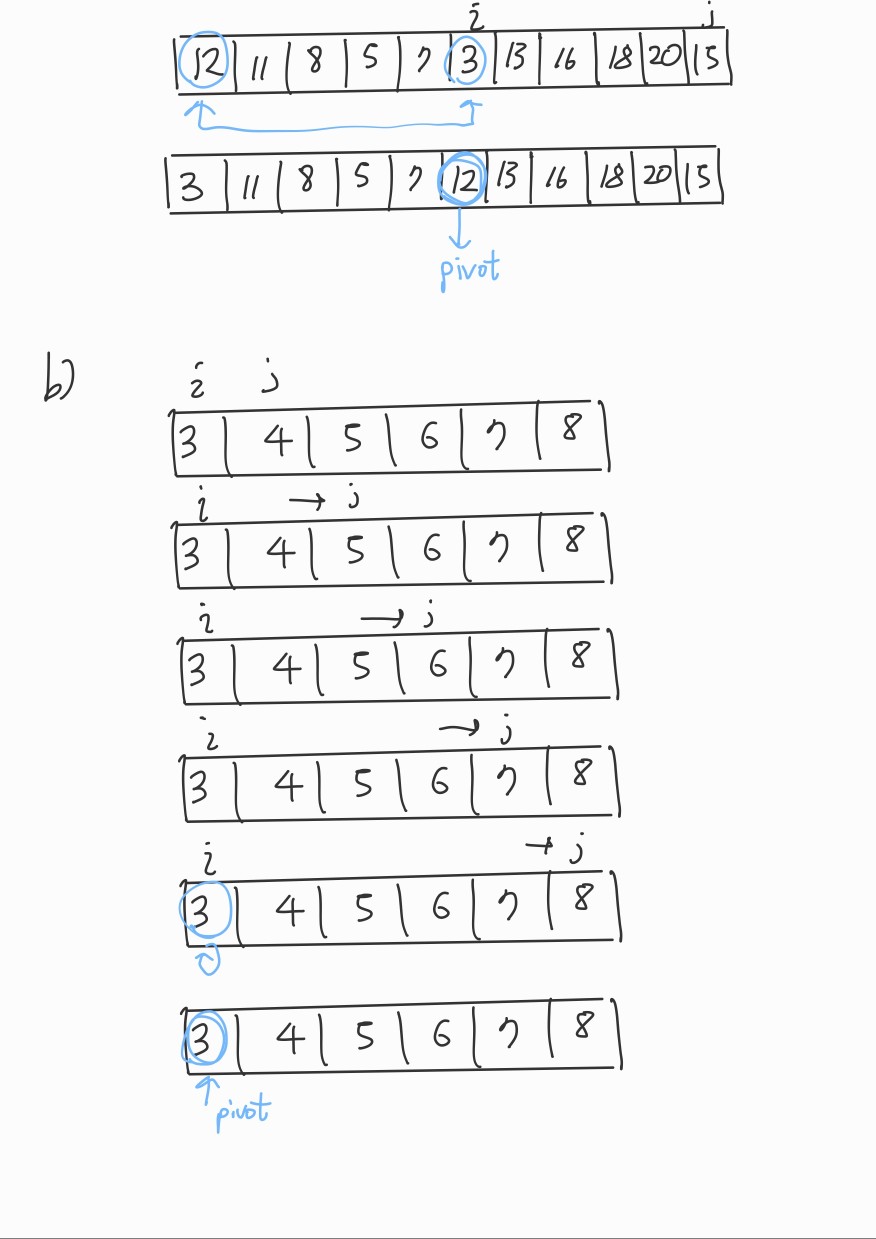 i j
12 11 8 5 7 3 13 16 18 20 15
3 11 8 5 7 12 13 16 18 20 15
pivot
b)
i j
3 4 5 6 7 8
i → j
3 4 5 6 7 8
i → j
3 4 5 6 7 8
i → j
3 4 5 6 7 8
i → j
3 4 5 6 7 8
3 4 5 6 7 8
pivot